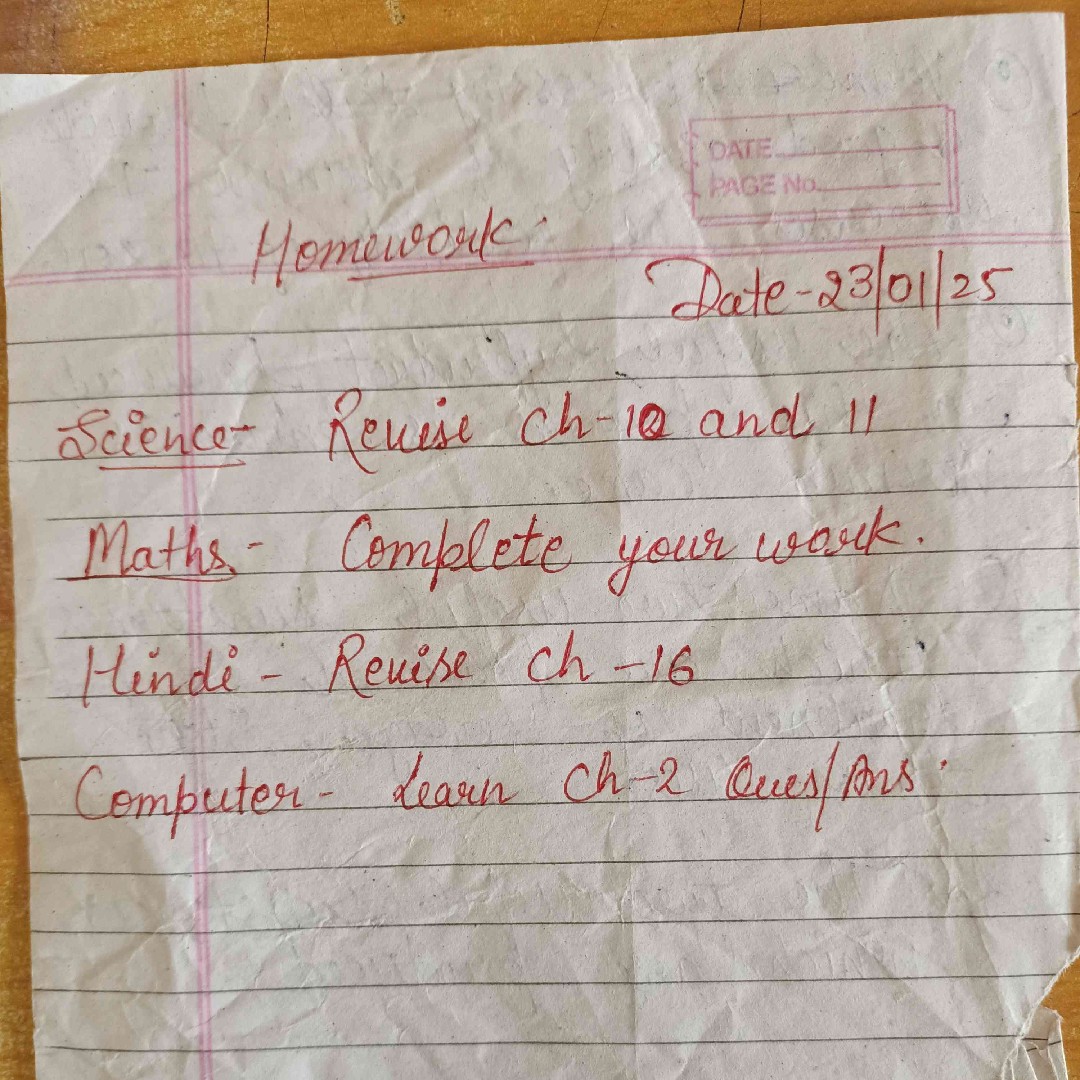 DATE
PAGE No.
Homework.
Date-23/01/25
Science- Revise Ch-10 and 11
Maths- Complete your work.
Hindi- Revise Ch-16
Computer- Learn Ch-2 Ques/Ans.